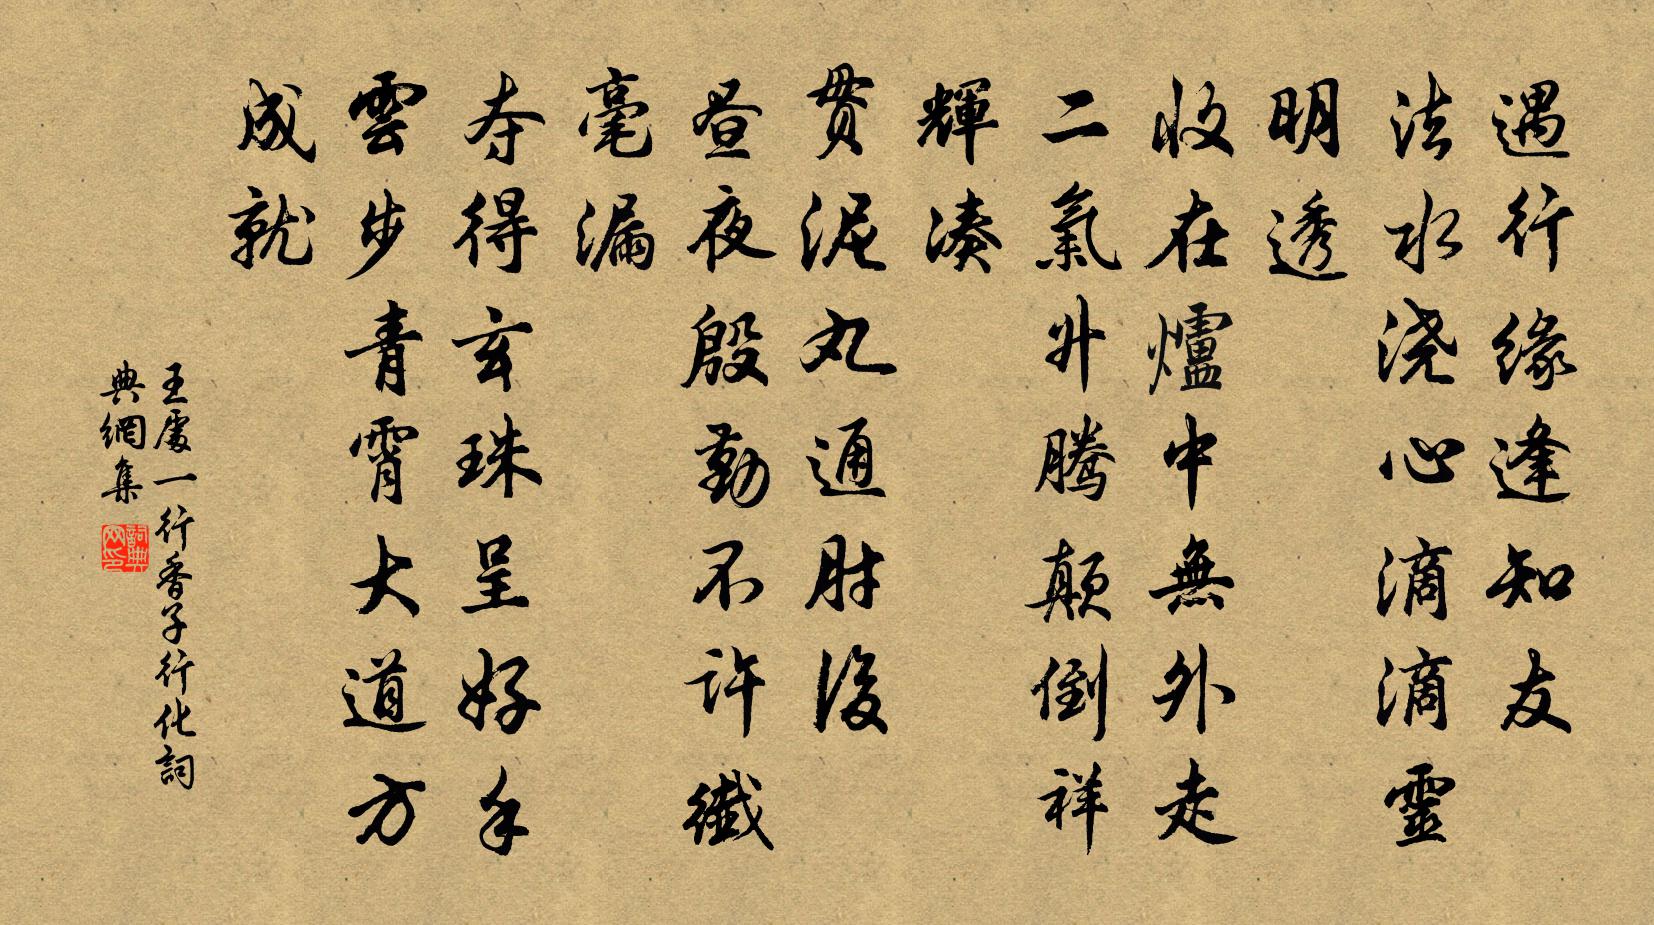 遇行缘逢知友
法水浇心滴滴靈
明透
收在爐中無外走
二氣升騰顛倒祥
輝湊
貫泥丸通肘後
昼夜殷勤不許纖
毫漏
夺得玄珠呈好手
雲步青霄大道方
成就
王處一行香子行化詞
典網集
詞典網印